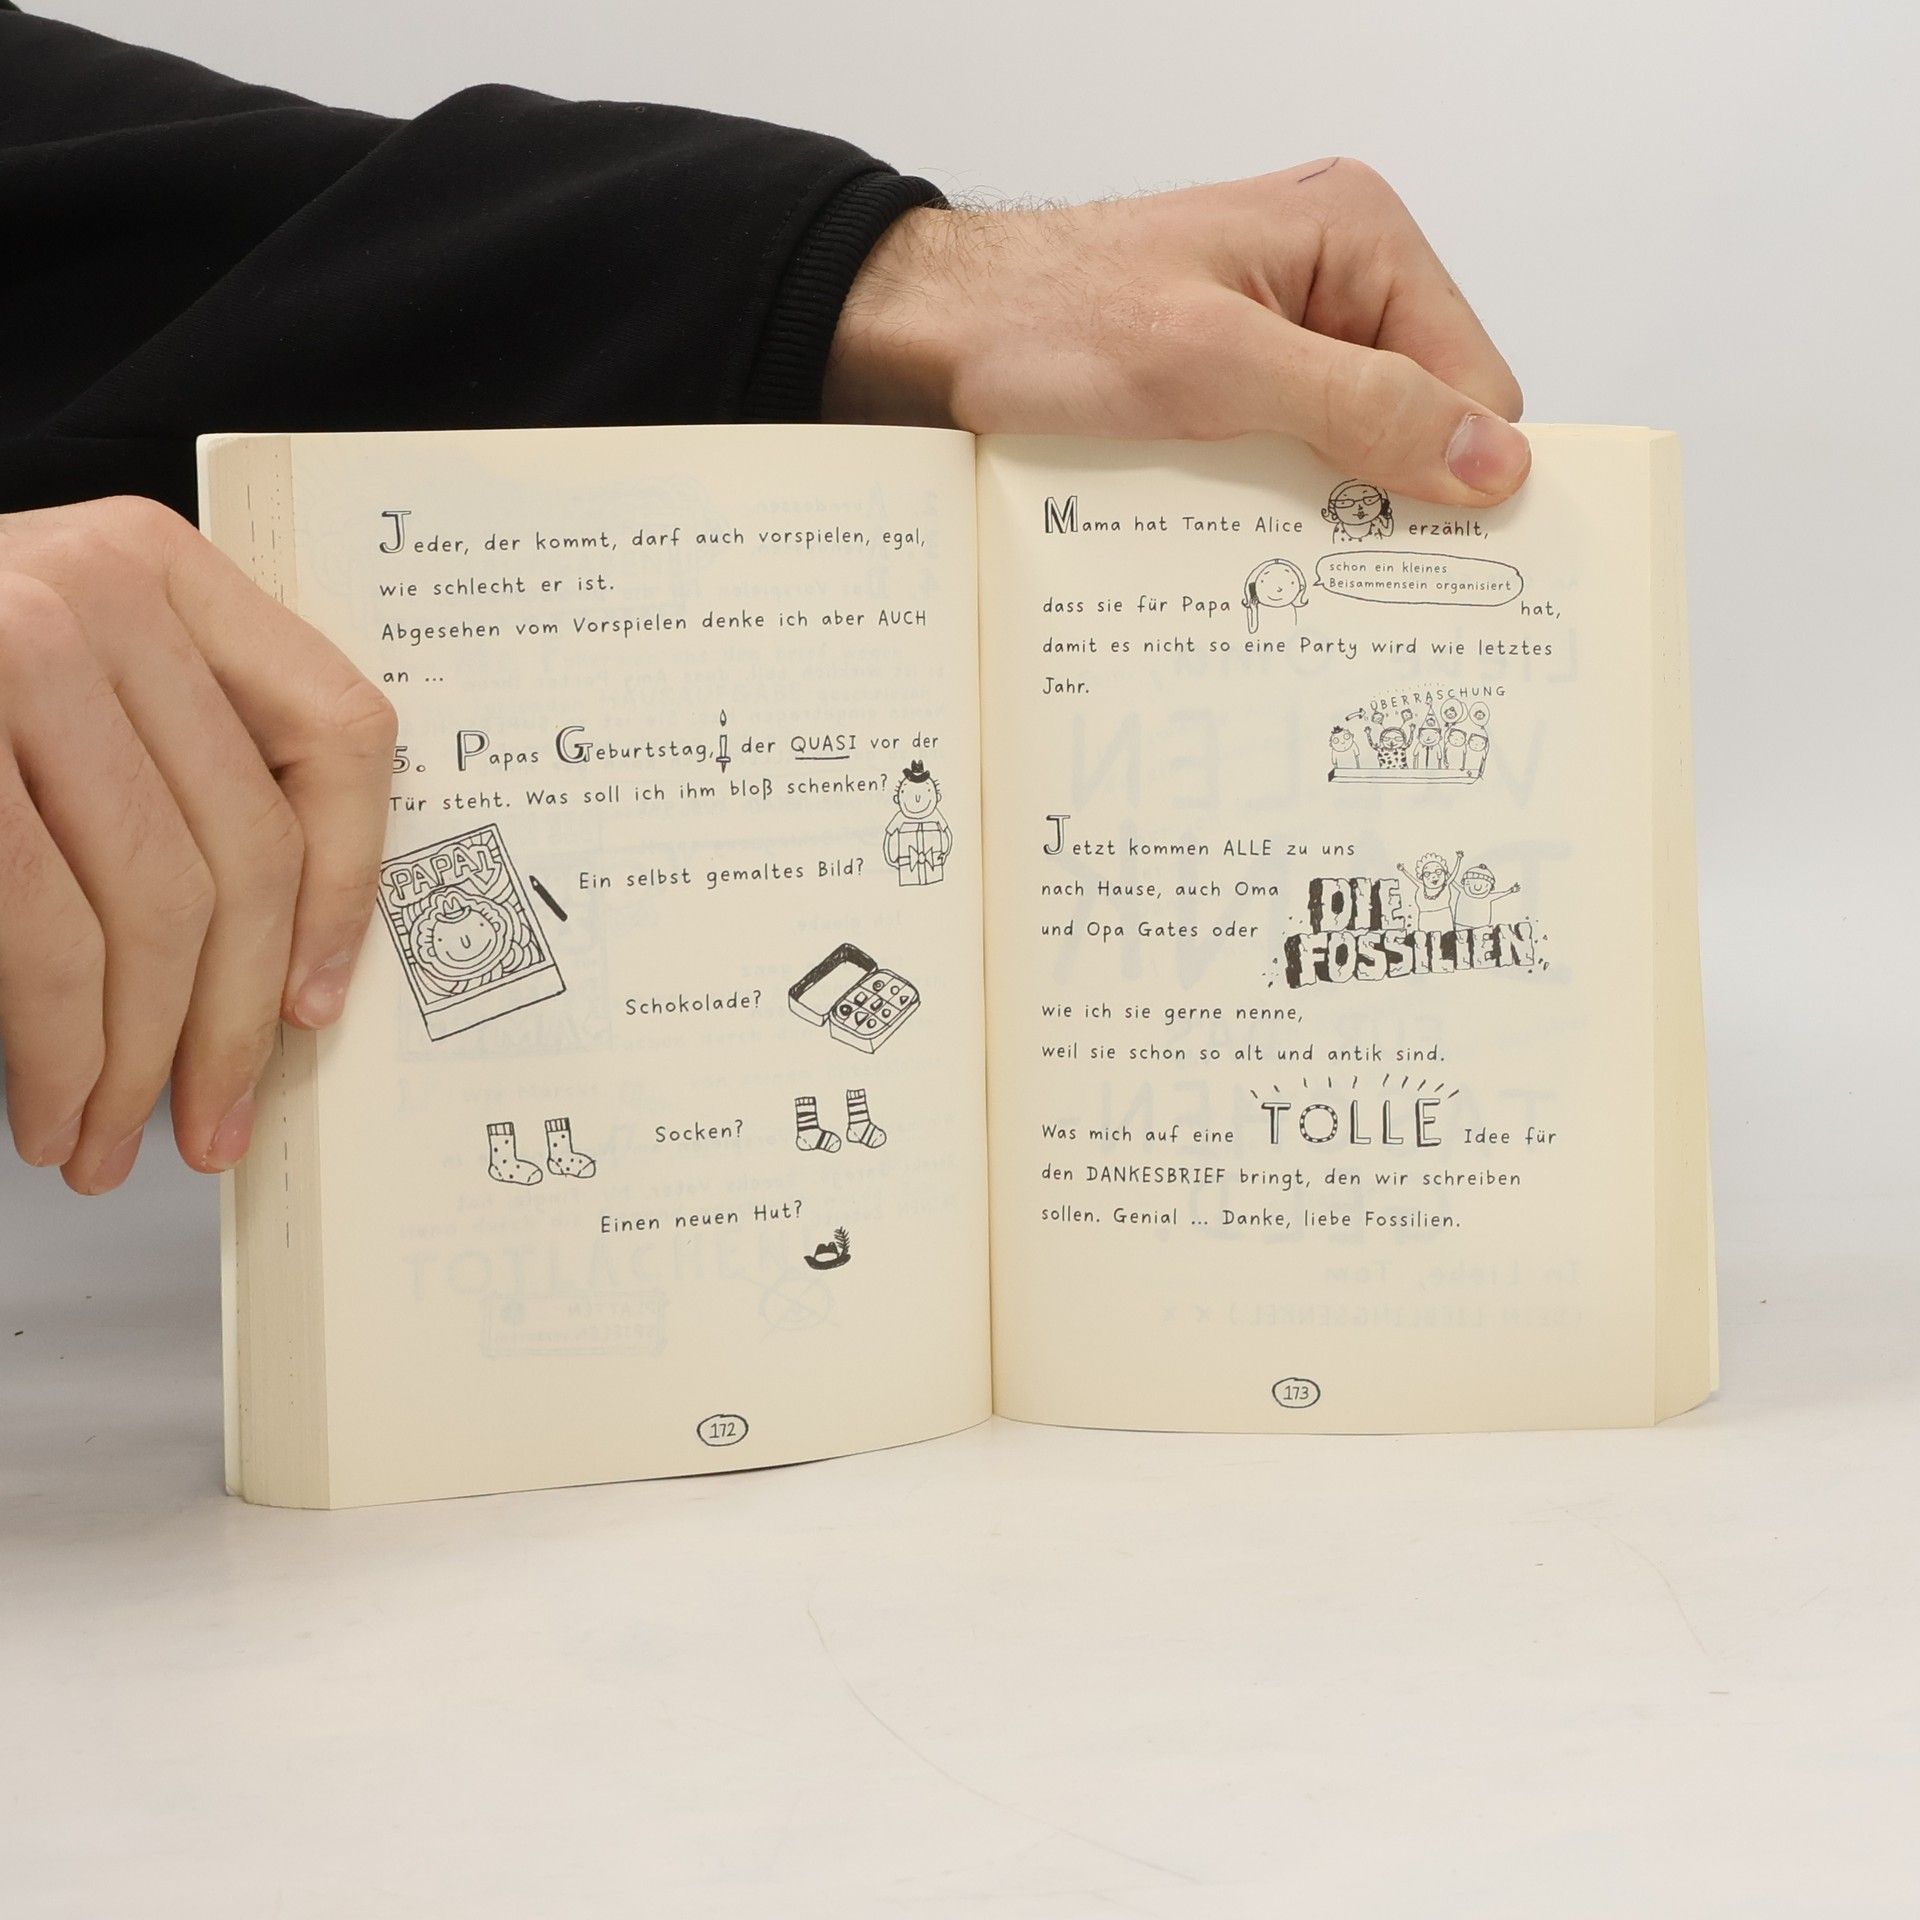 Jeder, der kommt, darf auch vorspielen, egal,
wie schlecht er ist.
Abgesehen vom Vorspielen denke ich aber AUCH
an ...
5. Papas Geburtstag, der QUASI vor der
Tür steht. Was soll ich ihm bloß schenken?
PAPA
Ein selbst gemaltes Bild?
Schokolade?
Socken?
Einen neuen Hut?
172
Mama hat Tante Alice erzählt,
schon ein kleines
Beisammensein organisiert
dass sie für Papa hat,
damit es nicht so eine Party wird wie letztes
Jahr.
ÜBERRASCHUNG
Jetzt kommen ALLE zu uns
nach Hause, auch Oma
und Opa Gates oder
DIE
FOSSILIEN
wie ich sie gerne nenne,
weil sie schon so alt und antik sind.
Was mich auf eine TOLLE Idee für
den DANKESBRIEF bringt, den wir schreiben
sollen. Genial ... Danke, liebe Fossilien.
173